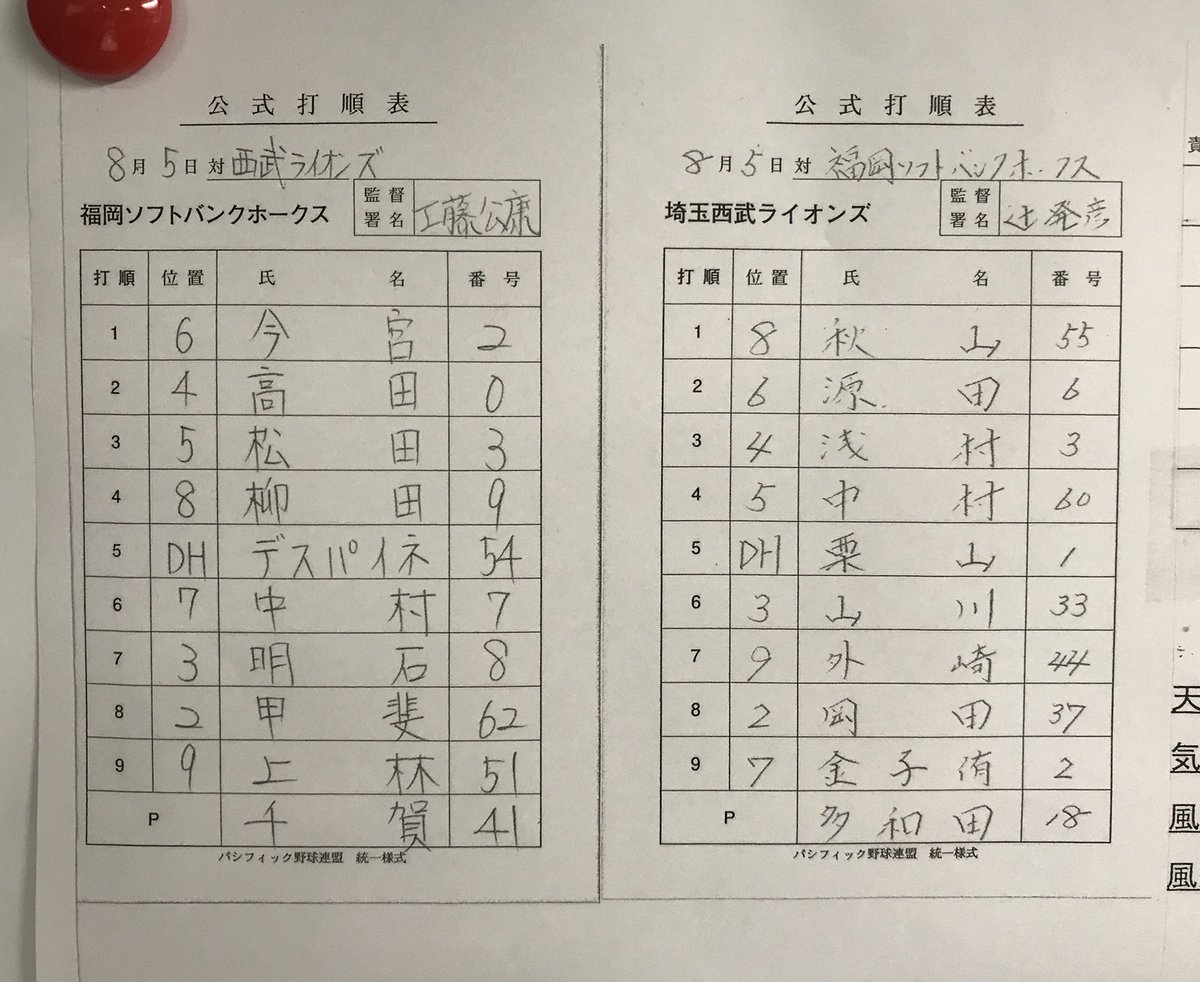 公式打順表
8月5日対西武ライオンズ
福岡ソフトバンクホークス 監督署名 工藤公康
打順 位置 氏名 番号
1 6 今宮 2
2 4 高田 0
3 5 松田 3
4 8 柳田 9
5 DH デスパイネ 54
6 7 中村 7
7 3 明石 8
8 2 甲斐 62
9 9 上林 51
P 千賀 41
パシフィック野球連盟 統一様式
公式打順表
8月5日対福岡ソフトバンクホークス
埼玉西武ライオンズ 監督署名 辻発彦
打順 位置 氏名 番号
1 8 秋山 55
2 6 源田 6
3 4 浅村 3
4 5 中村 60
5 DH 栗山 1
6 3 山川 33
7 9 外崎 44
8 2 岡田 37
9 7 金子侑 2
P 多和田 18
パシフィック野球連盟 統一様式
責
天
気
風
風